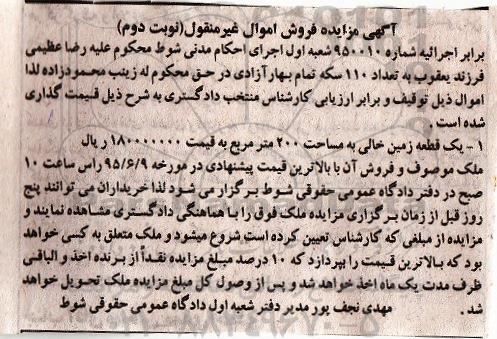 آگهی مزایده فروش اموال غیرمنقول(نوبت دوم)
برابر اجرائیه شماره ۹۵۰۰۱۰ شعبه اول اجرای احکام مدنی شوط محکوم علیه رضا عظیمی
فرزند یعقوب به تعداد ۱۱۰ سکه تمام بهار آزادی در حق محکوم له زینب محمودزاده لذا
اموال ذیل توقیف و برابر ارزیابی کارشناس منتخب دادگستری به شرح ذیل قیمت گذاری
شده است .
۱ - یک قطعه زمین خالی به مساحت ۲۰۰ متر مربع به قیمت ۱۸۰۰۰۰۰۰۰ ریال
ملک موصوف و فروش آن با بالاترین قیمت پیشنهادی در مورخه ۹۵/۶/۹ راس ساعت ۱۰
صبح در دفتر دادگاه عمومی حقوقی شوط برگزار می شود لذا خریداران می توانند پنج
روز قبل از زمان برگزاری مزایده ملک فوق را با هماهنگی دادگستری مشاهده نمایند و
مزایده از مبلغی که کارشناس تعیین کرده است شروع میشود و ملک متعلق به کسی خواهد
بود که بالاترین قیمت را بپردازد که ۱۰ درصد مبلغ مزایده نقداً از برنده اخذ و الباقی
ظرف مدت یک ماه اخذ خواهد شد و پس از وصول کل مبلغ مزایده ملک تحویل خواهد
شد .
مهدی نجف پور مدیر دفتر شعبه اول دادگاه عمومی حقوقی شوط